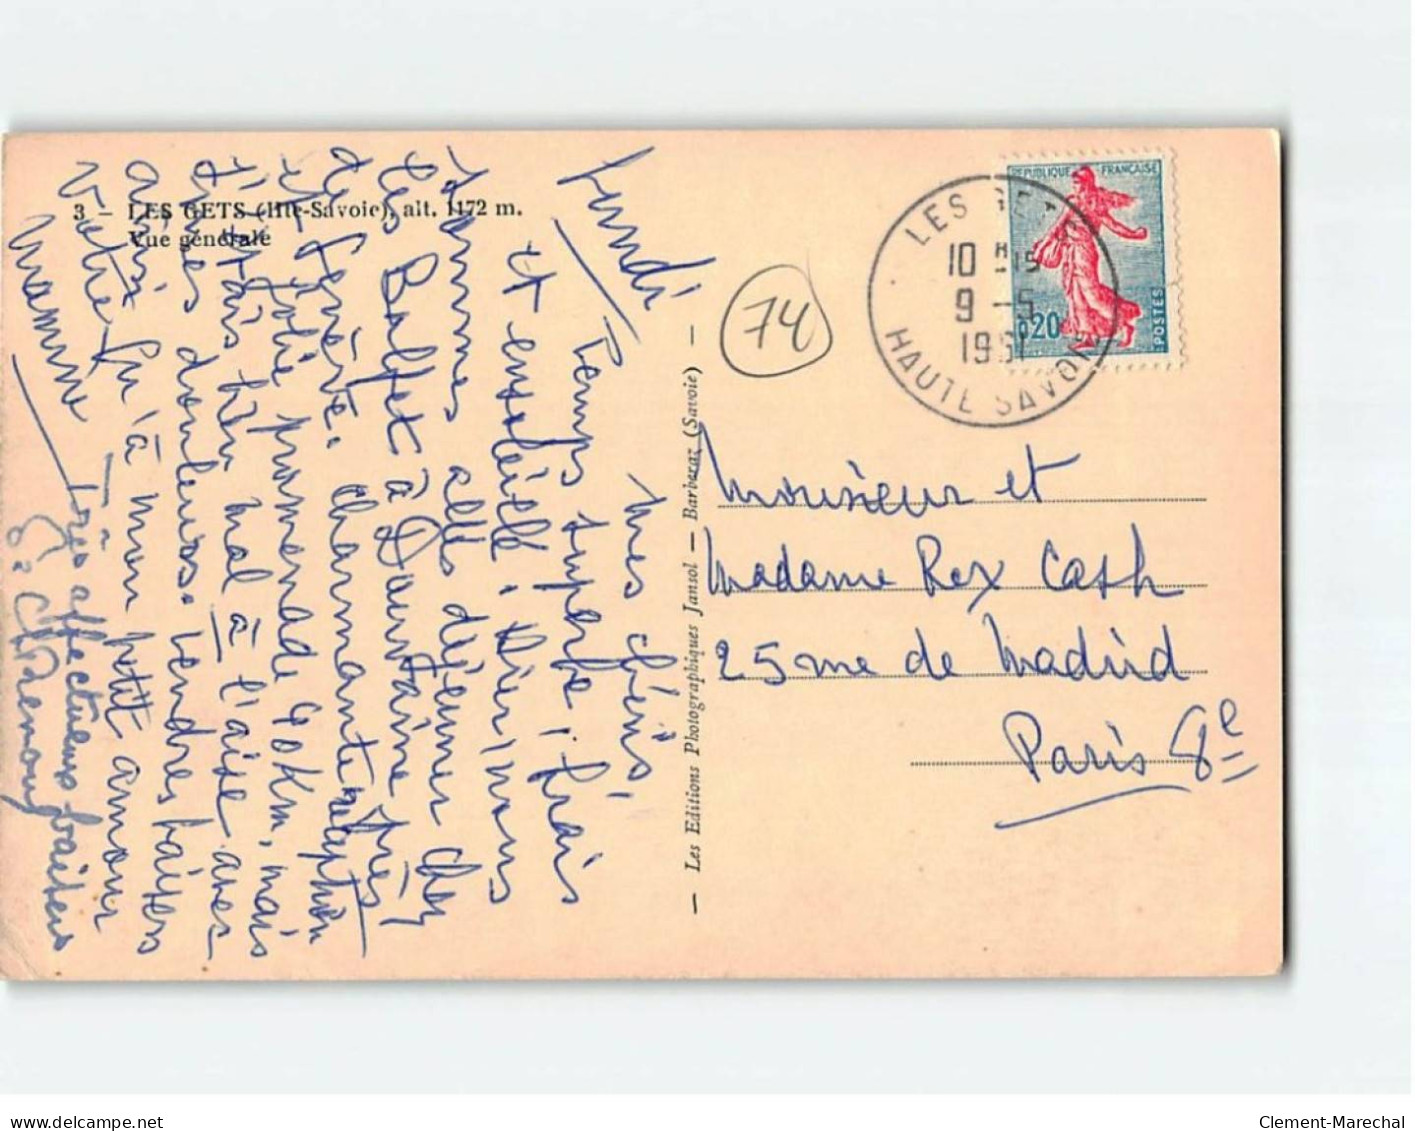 3 - LES GETS (Hte-Savoie), alt. 1172 m.
Vue générale
Lundi
mes chéris,
Temps superbe, frais
et ensoleillé. Hier, nous
sommes allés déjeuner chez
les Balfet à Douvaine près
de Genève. Charmante réception
et jolie promenade 40 Km, mais
j'étais bien mal à l'aise avec
mes douleurs. Tendres baisers
ainsi qu'à mon petit amour
Votre
Mamine
Très affectueux baisers
- Les Editions Photographiques Jansol - Barberaz (Savoie) -
74
LES GETS
10 H 15
9 - 5
HAUTE SAVOIE
REPUBLIQUE FRANÇAISE
0,20
POSTES
Monsieur et
Madame Rex Cash
25 rue de Madrid
Paris 8e
delcampe.net
Clement-Marechal